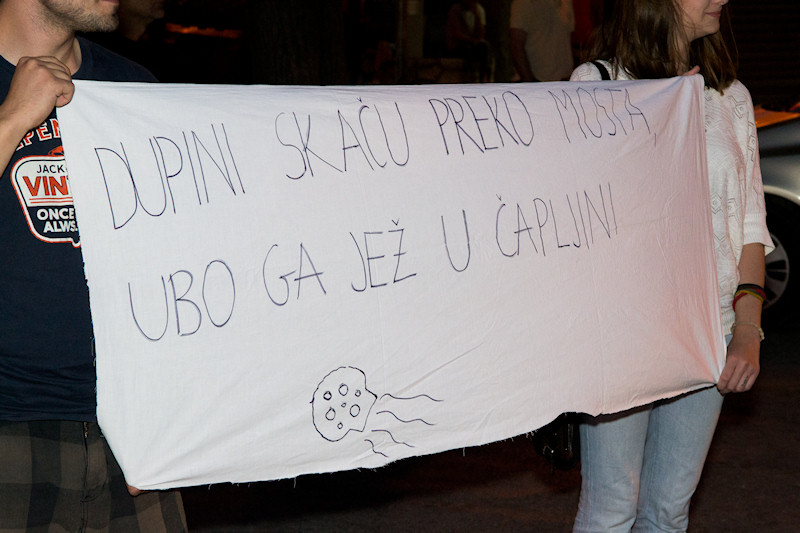 DUPINI SKAČU PREKO MOSTA,
UBO GA JEŽ U ČAPLJINI
JACK
VINT
ONCE
ALWS.